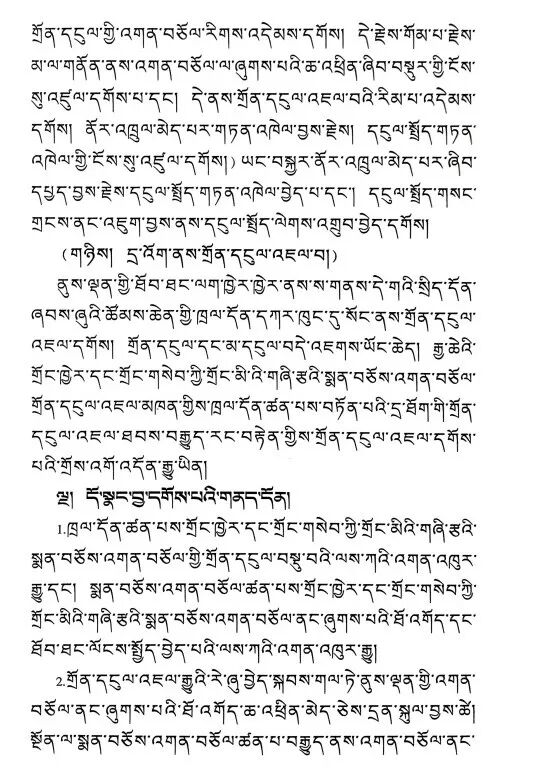 གྲོན་དངུལ་གྱི་འགན་བཅོལ་རིགས་འདེམས་དགོས། དེ་རྗེས་གོམ་པ་རྗེས་
མ་ལ་གནོན་ནས་འགན་བཅོལ་ལ་ཞུགས་པའི་ཆ་འཕྲིན་ཞིབ་བསྡུར་གྱི་ངོས་
སུ་འཛུལ་དགོས་པ་དང། དེ་ནས་གྲོན་དངུལ་འཇལ་བའི་རིམ་པ་འདེམས་
དགོས། ནོར་འཁྲུལ་མེད་པར་གཏན་འཁེལ་བྱས་རྗེས། དངུལ་སྤྲོད་གཏན་
འཁེལ་གྱི་ངོས་སུ་འཛུལ་དགོས།) ཡང་བསྐྱར་ནོར་འཁྲུལ་མེད་པར་ཞིབ་
དཔྱད་བྱས་རྗེས་དངུལ་སྤྲོད་གཏན་འཁེལ་བྱེད་པ་དང་། དངུལ་སྤྲོད་གསང་
གྲངས་ནང་འཇུག་བྱས་ནས་དངུལ་སྤྲོད་ལེགས་འགྲུབ་བྱེད་དགོས།
(གཉིས། དྲ་འོག་ནས་གྲོན་དངུལ་འཇལ་བ།)
ནུས་ལྡན་གྱི་ཐོབ་ཐང་ལག་ཁྱེར་ཁྱེར་ནས་ས་གནས་དེ་གའི་སྲིད་དོན་
ཞབས་ཞུའི་ཚོམས་ཆེན་གྱི་ཁྲལ་དོན་དཀར་ཁུང་དུ་སོང་ནས་གྲོན་དངུལ་
འཇལ་དགོས། གྲོན་དངུལ་དང་མ་དངུལ་བདེ་འཇགས་ཡོང་ཆེད། རྒྱ་ཆེའི་
གྲོང་ཁྱེར་དང་གྲོང་གསེབ་ཀྱི་གྲོང་མི་འི་གཞི་རྩའི་སྨན་བཅོས་འགན་བཅོལ་
གྲོན་དངུལ་འཇལ་མཁན་གྱིས་ཁྲལ་དོན་ཚན་པས་བཏོན་པའི་དྲ་ཐོག་གི་གྲོན་
དངུལ་འཇལ་ཐབས་བརྒྱུད་རང་བརྟེན་གྱིས་གྲོན་དངུལ་འཇལ་དགོས་
པའི་གྲོས་འགོ་འདོན་རྒྱུ་ཡིན།
ལྔ། དོ་སྣང་བྱ་དགོས་པའི་གནད་དོན།
1.ཁྲལ་དོན་ཚན་པས་གྲོང་ཁྱེར་དང་གྲོང་གསེབ་ཀྱི་གྲོང་མིའི་གཞི་རྩའི་
སྨན་བཅོས་འགན་བཅོལ་གྱི་གྲོན་དངུལ་བསྡུ་བའི་ལས་ཀའི་འགན་འཁུར་
རྒྱུ་དང། སྨན་བཅོས་འགན་བཅོལ་ཚན་པས་གྲོང་ཁྱེར་དང་གྲོང་གསེབ་ཀྱི་
གྲོང་མིའི་གཞི་རྩའི་སྨན་བཅོས་འགན་བཅོལ་ནང་ཞུགས་པའི་ཐོ་འགོད་དང་
ཐོབ་ཐང་ལོངས་སྤྱོད་བྱེད་པའི་ལས་ཀའི་འགན་འཁུར་རྒྱུ།
2.གྲོན་དངུལ་འཇལ་རྒྱུའི་རེ་ཞུ་བྱེད་སྐབས་གལ་ཏེ་ནུས་ལྡན་གྱི་འགན་
བཅོལ་ནང་ཞུགས་པའི་ཐོ་འགོད་ཆ་འཕྲིན་མེད་ཅེས་དྲན་སྐུལ་བྱས་ཚེ།
སྔོན་ལ་སྨན་བཅོས་འགན་བཅོལ་ཚན་པ་བརྒྱུད་ནས་འགན་བཅོལ་ནང་